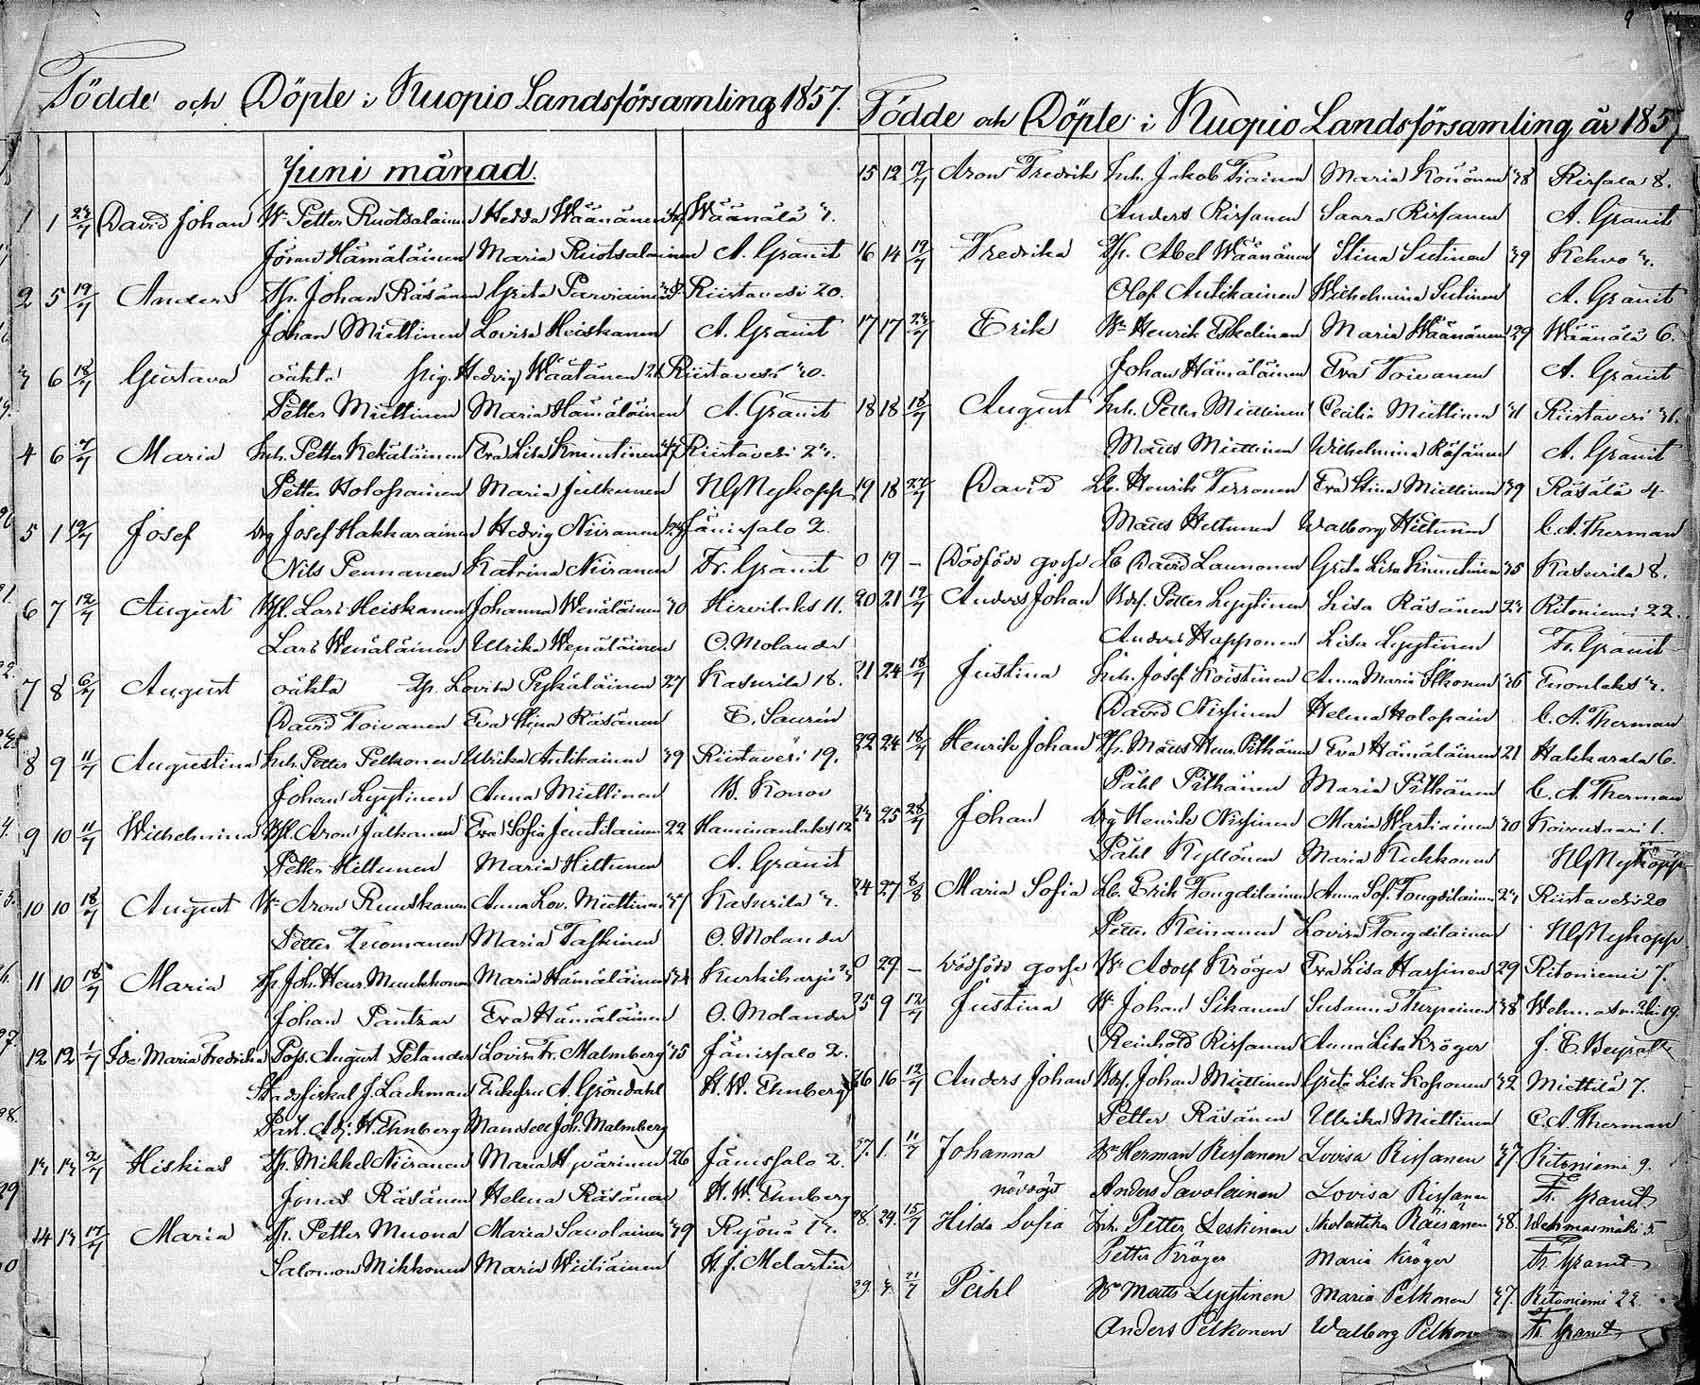 Födde och Döpte i Kuopio Landsförsamling 1857.
Juni månad.
1 1 David Johan Petter Ruotsalainen Hedda Wäänänen Wäänälä
Jöran Hämäläinen Maria Ruotsalainen A. Granit
2 5 19/7 Anders Johan Räsänen Greta Parviainen Riistavesi 20.
Johan Miettinen Lovisa Heiskanen A. Granit
3 6 18/7 Gustava oäkta pig. Hedvig Wäätänen Riistavesi 30.
Petter Miettinen Maria Hämäläinen A. Granit
4 6 7/7 Maria Inh. Petter Kekäläinen Eva Lisa Knuutinen Riistavesi 23.
Petter Holopainen Maria Julkunen Nykopp
5 1 Josef Drg Josef Hakkarainen Hedvig Niiranen Jänissalo 2.
Nils Pennanen Katrina Niiranen Fr. Granit
6 7 12/7 August Lars Heiskanen Johanna Wenäläinen 30 Hirvilaks 11.
Lars Wenäläinen Ulrika Wenäläinen O. Molander
7 8 6/7 August oäkta Lovisa Pykäläinen 27 Kasurila 18.
David Toivanen Eva Stina Räsänen E. Saurén
8 9 11/7 Augustina Inh. Petter Pelkonen Ulrika Antikainen 39 Riistavesi 19.
Johan Lyytinen Anna Miettinen B. Konow
9 10 11/7 Wilhelmina Aron Jalkanen Eva Sofia Juutilainen 22 Haminanlaks 12
Petter Hiltunen Maria Hiltunen A. Granit
10 10 18/7 August Aron Ruuskanen Anna Lov. Miettinen 37 Kasurila 3.
Petter Tuomanen Maria Taskinen O. Molander
11 10 18/7 Maria Joh. Henr. Munkkonen Maria Hämäläinen 34 Kurkiharju
Johan Pantzar Eva Hämäläinen O. Molander
12 12 1/7 Ida Maria Fredrika Poss. August Petander Lovisa Fr. Malmberg 35 Jänissalo 2.
Stadsfiskal J. Lackman Enkefru A. Gröndahl H. W. Ehnberg
Past. Adj. H. Ehnberg Mamsell Joh. Malmberg
13 13 Hiskias Mikkel Niiranen Maria Hyvärinen 26 Jänissalo 2.
Jonas Räsänen Helena Räsänen H. W. Ehnberg
14 13 17/7 Maria Petter Muona Maria Savolainen 39 Ryönä 13.
Salomon Mikkonen Maria Wiiliäinen H. J. Melartin
9
Födde och Döpte i Kuopio Landsförsamling år 1857
15 12 19/7 Aron Fredrik Inh. Jakob Tiainen Maria Könönen 38 Rissala 8.
Anders Rissanen Saara Rissanen A. Granit
16 14 19/7 Fredrika Abel Wäänänen Stina Sutinen 39 Kehvo 3.
Olof Antikainen Wilhelmina Sutinen A. Granit
17 17 Erik Henrik Eskelinen Maria Wäänänen 29 Wäänälä 6.
Johan Hämäläinen Eva Toivanen A. Granit
18 18 18/7 August Inh. Petter Miettinen Cecilia Miettinen 31 Riistavesi 31.
Matts Miettinen Wilhelmina Räsänen A. Granit
19 18 David Lb. Henrik Tirronen Eva Stina Miettinen 39 Räsälä 4
Matts Hiltunen Walborg Hiltunen C. A. Therman
0 19 – Dödfödd gosse Lb David Launonen Greta Lisa Knuutinen 35 Kasurila 8.
20 21 19/7 Anders Johan Petter Lyytinen Lisa Räsänen 23 Ritoniemi 22.
Anders Happonen Lisa Lyytinen Fr. Granit
21 24 18/7 Justina Inh. Josef Koistinen Anna Maria Ikonen 36 Tuonlaks 3.
David Nissinen Helena Holopain C. A. Therman
22 24 18/7 Henrik Johan Matts Henr. Pitkänen Eva Hämäläinen 21 Hakkarala 6.
Påhl Pitkänen Maria Pitkänen C. A. Therman
23 25 28/7 Johan Drg Henrik Nissinen Maria Wartiainen 30 Koivusaari 1.
Påhl Kyllönen Maria Kukkonen Nykopp
24 27 8/8 Maria Sofia Lb. Erik Tougdilainen Anna Sof. Tougdilainen 23 Riistavesi 20
Petter Keinanen Lovisa Tougdilainen Nykopp
0 29 – Dödfödd gosse Adolf Kröger Eva Lisa Hassinen 29 Ritoniemi 7.
25 9 12/7 Justina Johan Sikanen Susanna Turpeinen 38 Wehmasmäki 19.
Reinhold Rissanen Anna Lisa Kröger J. E. Beyrath
26 16 12/7 Anders Johan Johan Miettinen Greta Lisa Kosonen 32 Miettilä 7.
Petter Räsänen Ulrika Miettinen C. A. Therman
27. 1. 11/7 Johanna Herman Rissanen Lovisa Rissanen 37 Ritoniemi 9.
nöddöpt Anders Savolainen Lovisa Rissanen Fr. Granit
28. 29. 15/7 Hilda Sofia Inh. Petter Leskinen Skolastika Räisänen 38. Wehmasmäki 5.
Petter Kröger Maria Kröger Fr. Granit
29. 3 21/7 Påhl Matts Lyytinen Maria Pelkonen 37. Ritoniemi 22.
Anders Pelkonen Walborg Pelkonen Fr. Granit